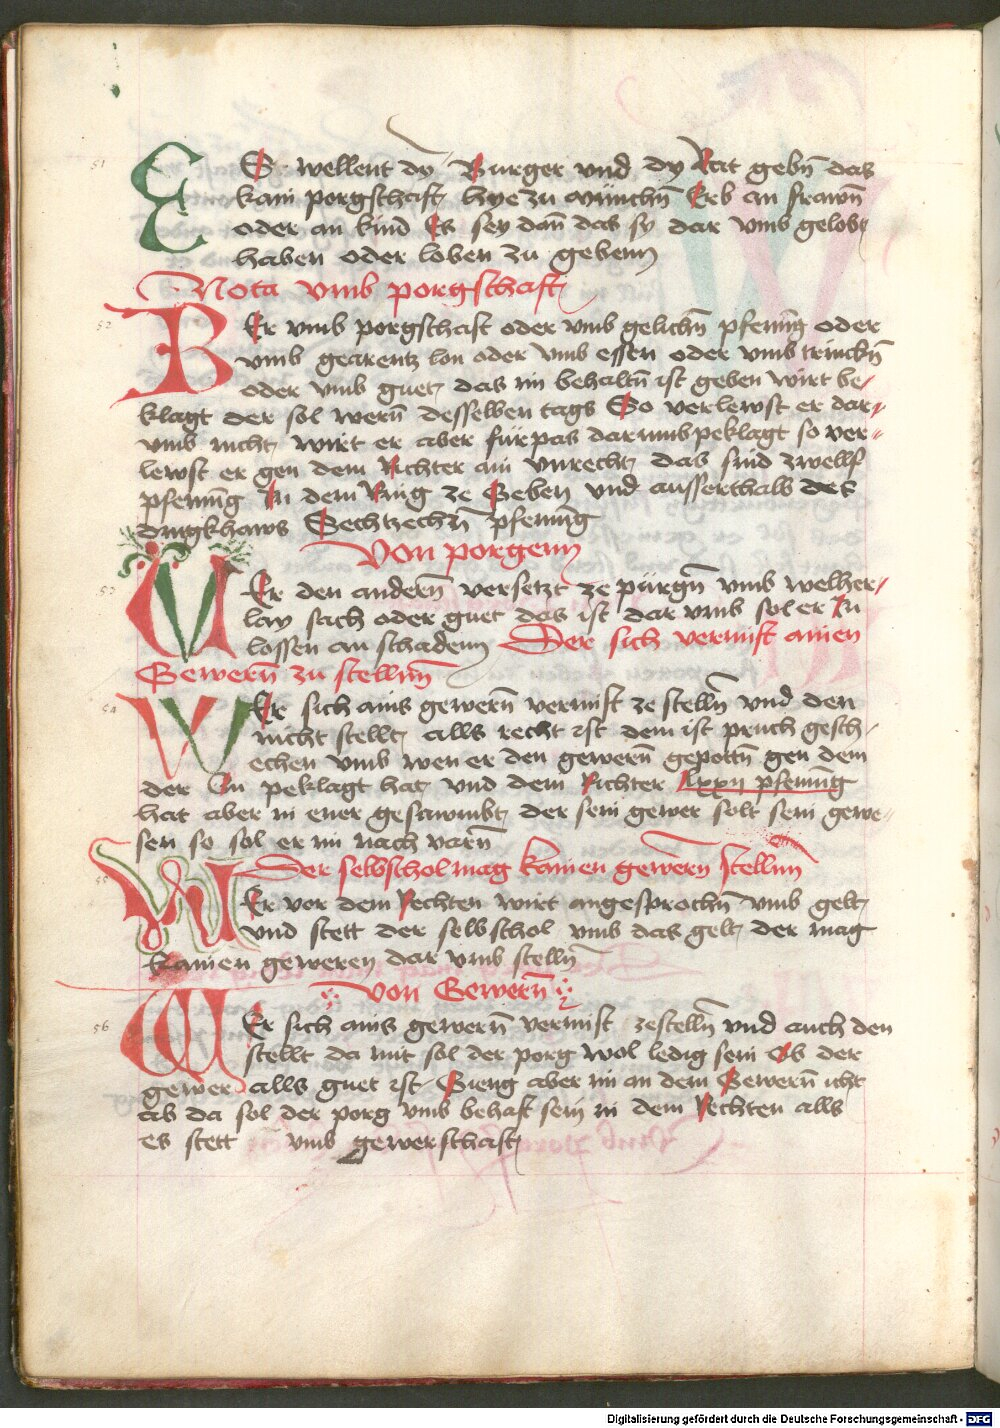 51
ES wellent dy Burger vnd dy Rat gebn̄ das
kain porgschaft hye zu münchn̄ Erb an frawn̄
oder an kind Es sey dan̄ das sy dar vmb gelobt
haben oder loben zu gebenn
Nota vmb porgschaft
52
BEr vmb porgschaft oder vmb gelichn̄ pfenīng oder
vmb gearentz lon oder vmb essen oder vmb trinckn̄
oder vmb guet das im behaltn̄ ist geben wirt be-
klagt der sol wern̄ desselben tags So verlewst er dar-
vmb nicht wirt er aber fürpas darumb peklagt so ver-
lewst er gen dem Richter ain vnrecht das sind zwellf
pfenīng In dem Ring ze Geben vnd ausserthalb des
dingkhaws Sechtzechn̄ pfenīng
Von porgenn
53
WEr den andern̄ versetzt ze pürgn̄ vmb welher-
lay sach oder guet das ist dar vmb sol er In
lossen an schadenn Der sich vermist ainen
Gewern̄ zu stellnn̄
54
WEr sich ains gewern̄ vermist ze stelln̄ vnd den
nicht stellt alls recht ist dem ist pruch gesch-
echen vmb wen er den gewern̄ gepottn̄ gen dem
der In peklagt hat vnd dem Richter lxxij pfenīng
hat aber in ener gesawmbt der sein gewer solt sein gewe-
sen so sol er im nach varn̄
Der selbschol mag kainen gewern̄ stellnn
55
WEr vor dem Rechten wirt angesprochn̄ vmb gelt
vnd stett der selbschol vmb das gelt der mag
kainen geweren dar vmb stelln̄
Von Gewern̄
56
WEr sich ains gewern̄ vermist zestelln̄ vnd auch den
stellt da mit sol der porg wol ledig sein Ob der
gewer alls guet ist Gieng aber im an dem Gewern̄ icht
ab da sol der porg vmb behaft sein in dem Rechten alls
es stett vmb gewerschaft
Digitalisierung gefördert durch die Deutsche Forschungsgemeinschaft - DFG